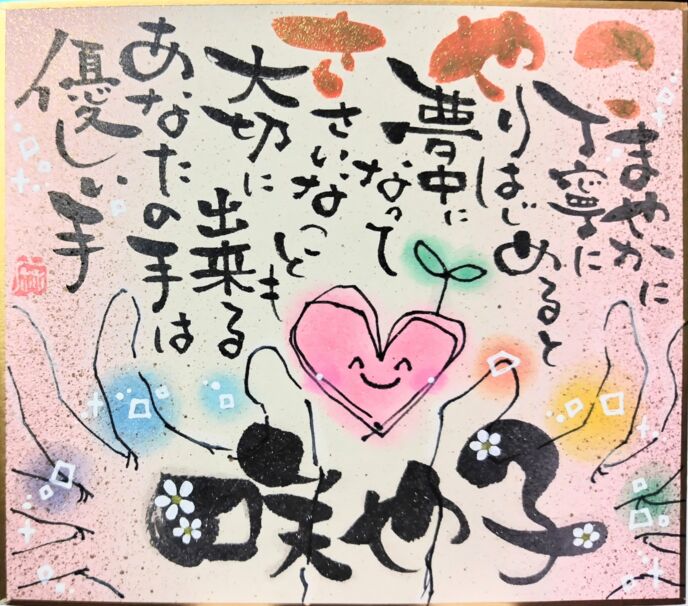 こまやかに
丁寧に
やりはじめると
夢中に
なって
ささいなことも
大切に
出来る
あなたの手は
優しい手
咲や子